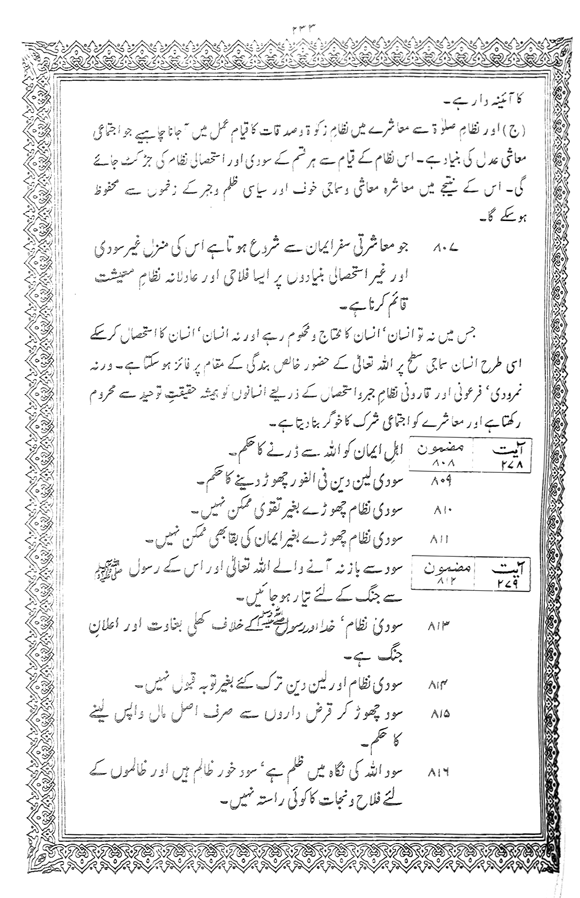 ۲۳۳
کا آئینہ دار ہے۔
(ج) اور نظامِ صلوٰۃ سے معاشرے میں نظامِ زکوٰۃ و صدقات کا قیام عمل میں آ جانا چاہیے جو اجتماعی
معاشی عدل کی بنیاد ہے۔ اس نظام کے قیام سے ہر قسم کے سودی اور استحصالی نظام کی جڑ کٹ جائے
گی۔ اس کے نتیجے میں معاشرہ معاشی و سماجی خوف اور سیاسی ظلم و جبر کے زخموں سے محفوظ
ہو سکے گا۔
۸۰۷ جو معاشرتی سفر ایمان سے شروع ہوتا ہے اس کی منزل غیر سودی
اور غیر استحصالی بنیادوں پر ایسا فلاحی اور عادلانہ نظامِ معیشت
قائم کرنا ہے۔
جس میں نہ تو انسان‘ انسان کا محتاج و محکوم رہے اور نہ انسان‘ انسان کا استحصال کر سکے
اسی طرح انسان سماجی سطح پر اللہ تعالیٰ کے حضور خالص بندگی کے مقام پر فائز ہو سکتا ہے۔ ورنہ
نمرودی‘ فرعونی اور قارونی نظامِ جبر و استحصال کے ذریعے انسانوں کو ہمیشہ حقیقتِ توحید سے محروم
رکھتا ہے اور معاشرے کو اجتماعی شرک کا خوگر بنا دیتا ہے۔
آیت ۲۷۸ مضمون ۸۰۸ اہلِ ایمان کو اللہ سے ڈرنے کا حکم۔
۸۰۹ سودی لین دین فی الفور چھوڑ دینے کا حکم۔
۸۱۰ سودی نظام چھوڑے بغیر تقویٰ ممکن نہیں۔
۸۱۱ سودی نظام چھوڑے بغیر ایمان کی بقا بھی ممکن نہیں۔
آیت ۲۷۹ مضمون ۸۱۲ سود سے باز نہ آنے والے اللہ تعالیٰ اور اس کے رسول ﷺ
سے جنگ کے لئے تیار ہو جائیں۔
۸۱۳ سودی نظام‘ خدا اور رسول ﷺ کے خلاف کھلی بغاوت اور اعلانِ
جنگ ہے۔
۸۱۴ سودی نظام اور لین دین ترک کئے بغیر توبہ قبول نہیں۔
۸۱۵ سود چھوڑ کر قرض داروں سے صرف اصل مال واپس لینے
کا حکم۔
۸۱۶ سود اللہ کی نگاہ میں ظلم ہے‘ سود خور ظالم ہیں اور ظالموں کے
لئے فلاح و نجات کا کوئی راستہ نہیں۔